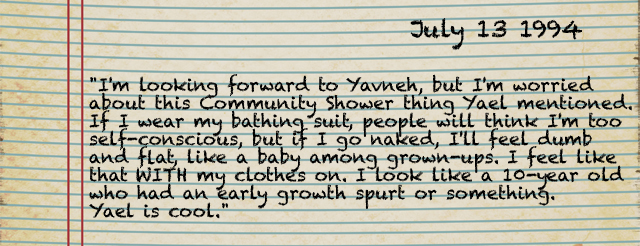 July 13 1994
"I'm looking forward to Yavneh, but I'm worried
about this Community Shower thing Yael mentioned.
If I wear my bathing suit, people will think I'm too
self-conscious, but if I go naked, I'll feel dumb
and flat, like a baby among grown-ups. I feel like
that WITH my clothes on. I look like a 10-year old
who had an early growth spurt or something.
Yael is cool."